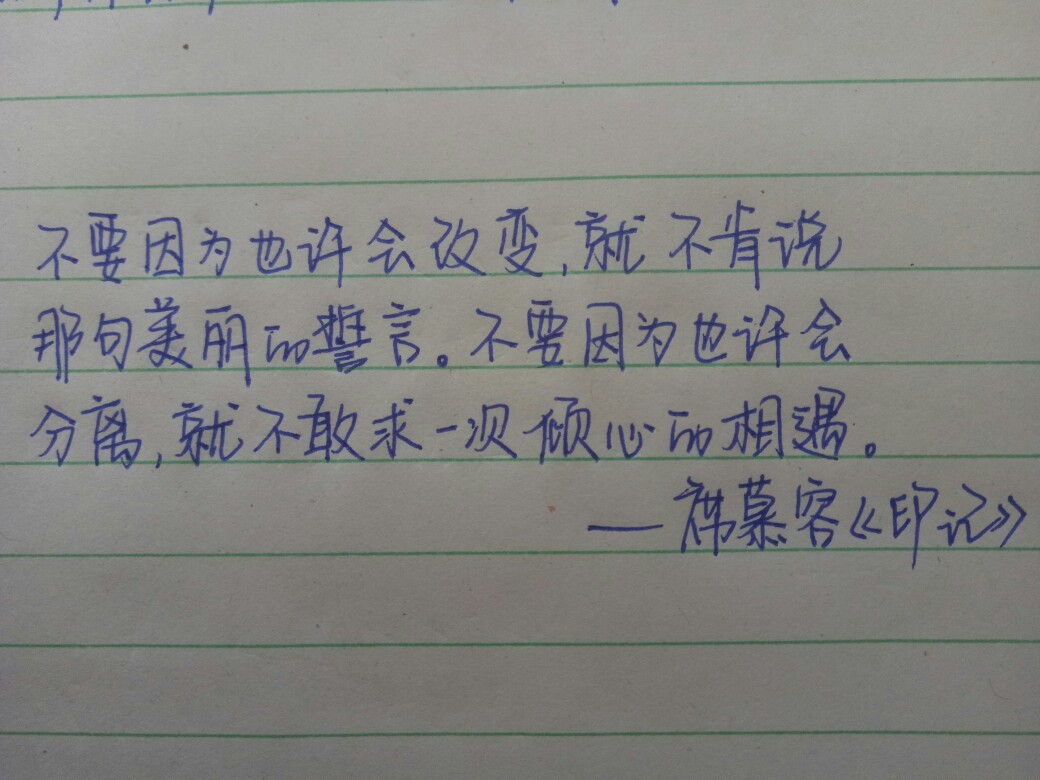 不要因为也许会改变,就不肯说
那句美丽的誓言。不要因为也许会
分离,就不敢求一次倾心的相遇。
——席慕容《印记》